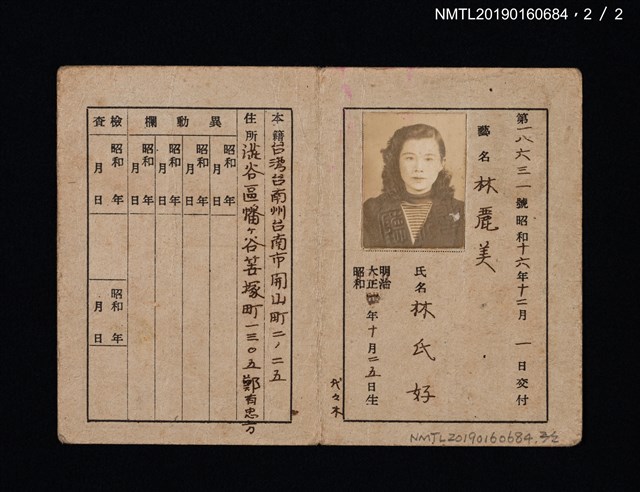 NMTL20190160684，2 / 2
第一八六三一號昭和十六年十二月一日交付
藝名 林麗美
氏名 林氏好
明治
大正
昭和
年十月二五日生
代々木
本籍 台湾台南州台南市開山町二ノ二五
住所 渋谷區幡ヶ谷笹塚町一三〇五鄭有忠方
異動欄
檢査
昭和 年 月 日
昭和 年 月 日
昭和 年 月 日
昭和 年 月 日
昭和 年 月 日
昭和 年 月 日
NMTL20190160684